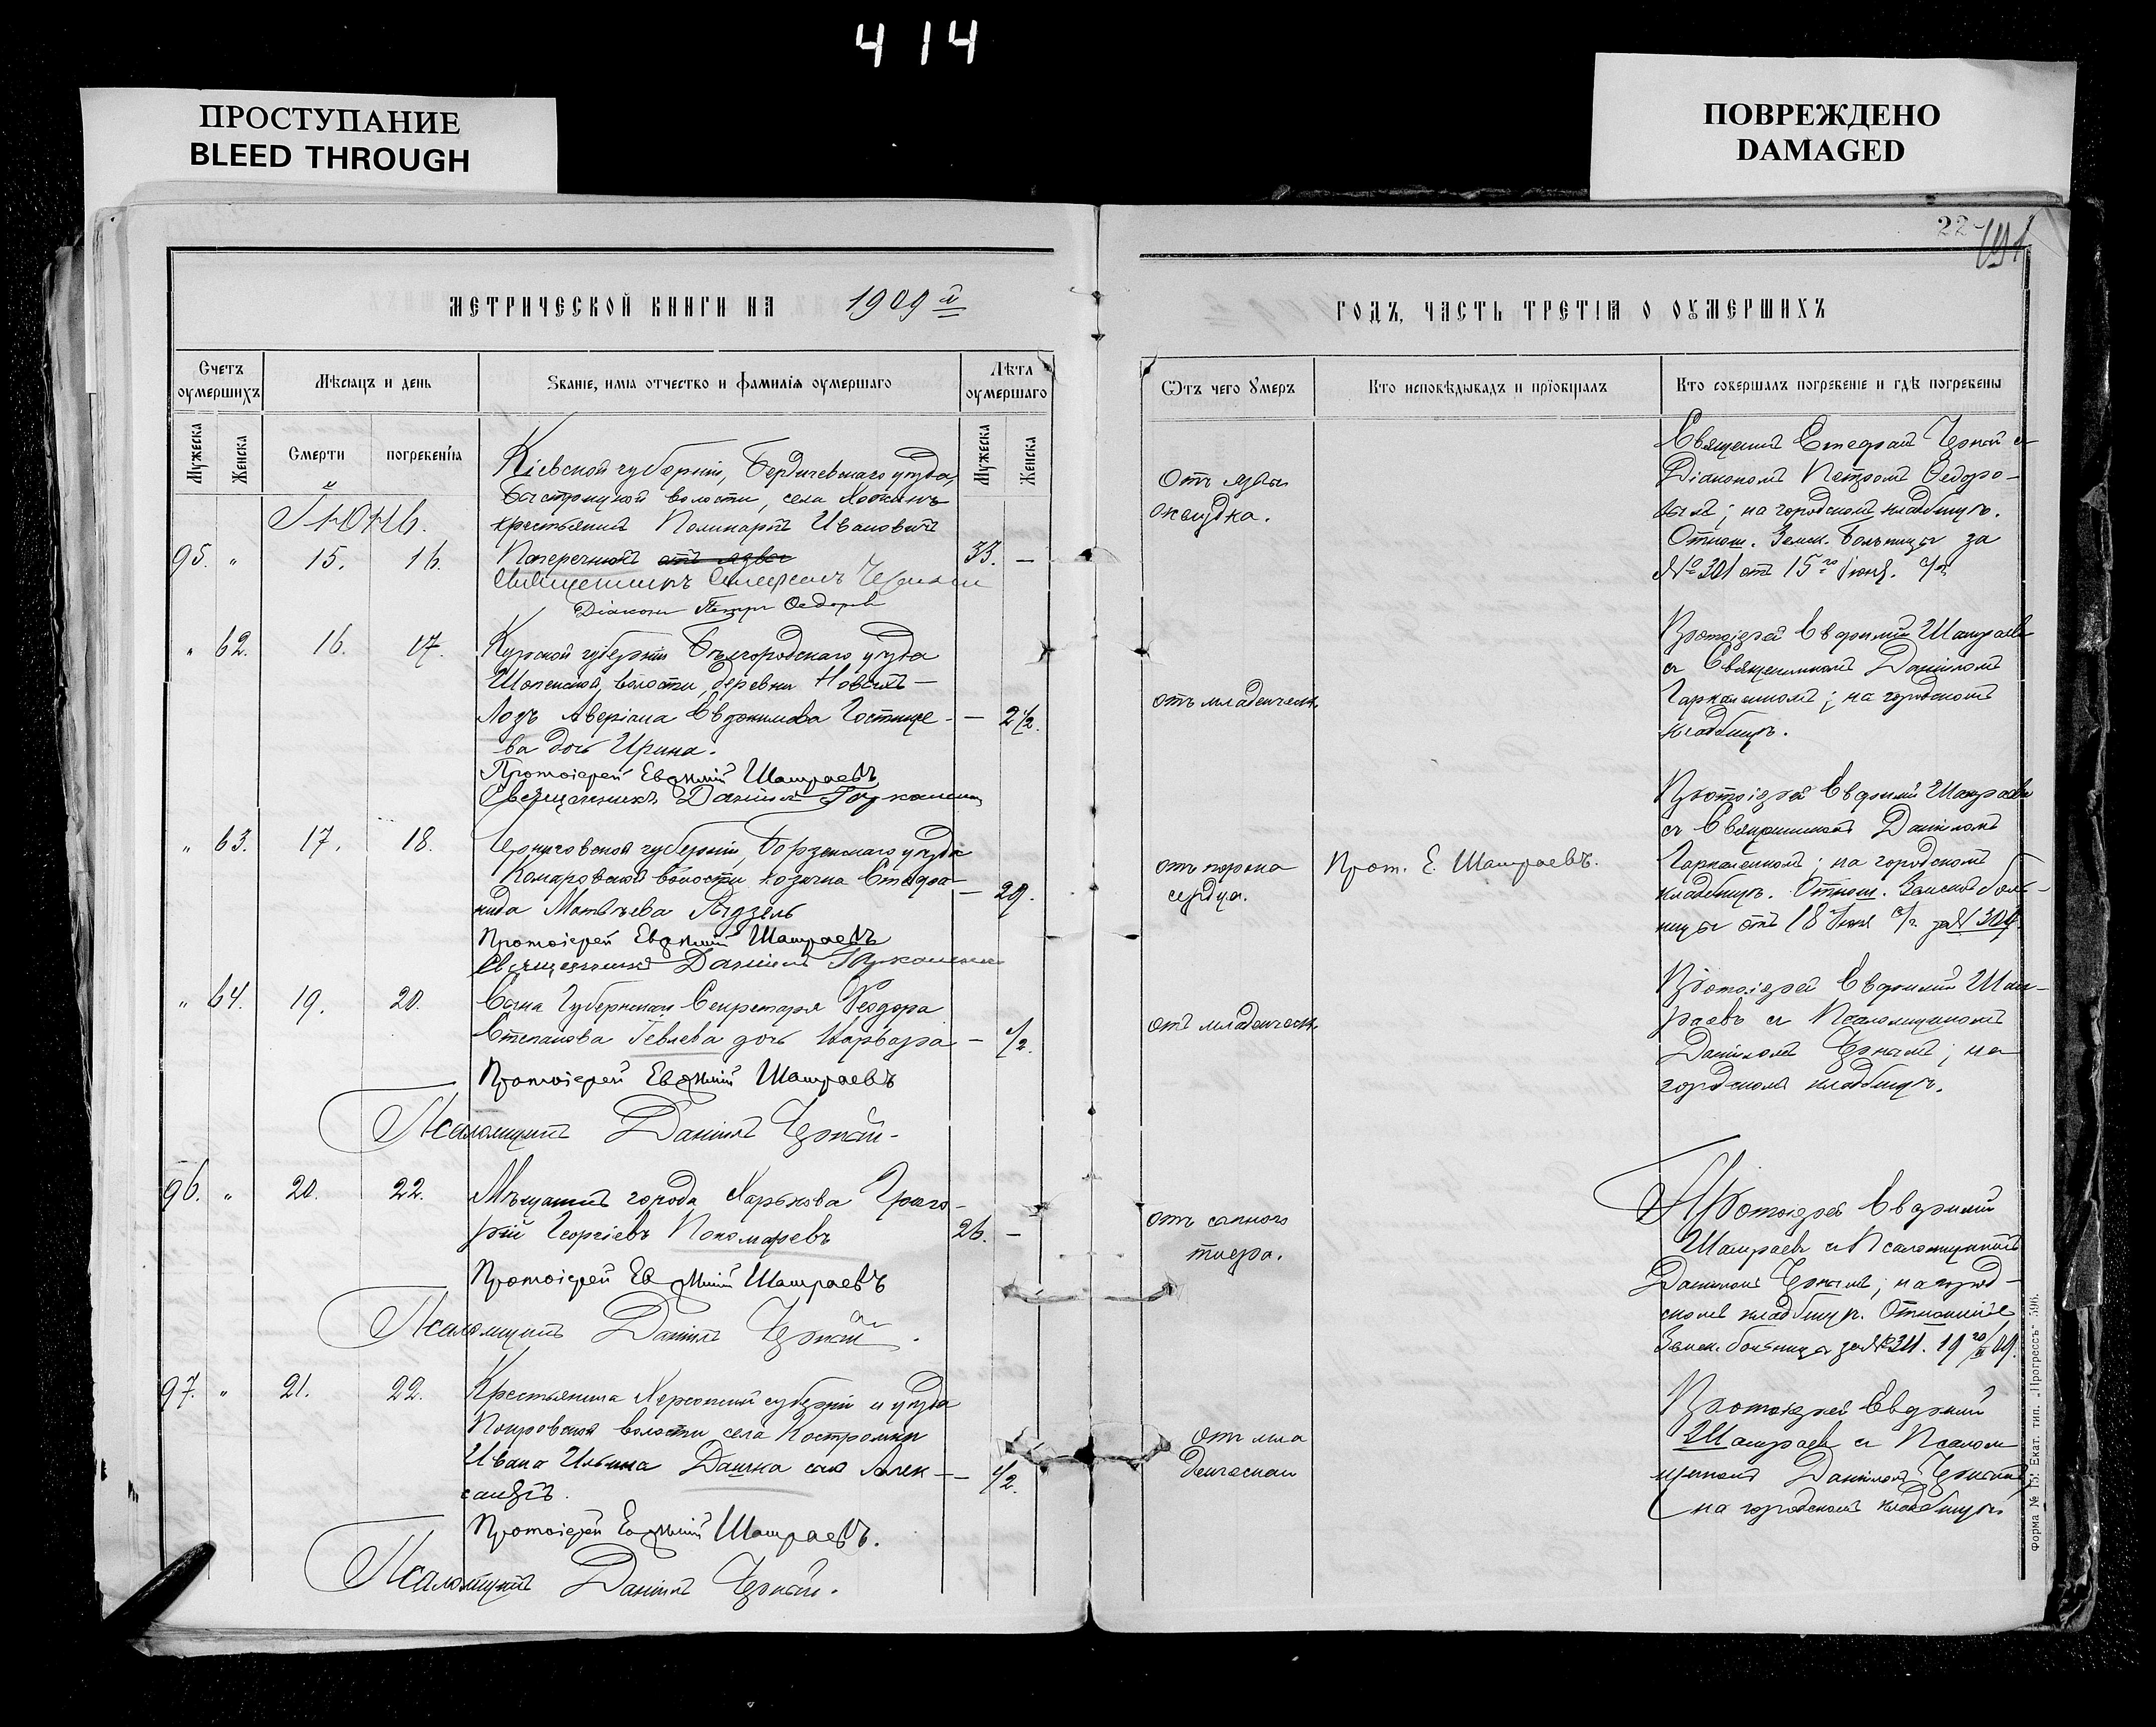 414
ПРОСТУПАНИЕ
BLEED THROUGH
ПОВРЕЖДЕНО
DAMAGED
22
МЕТРИЧЕСКОЙ КНИГИ НА 1909й
ГОДЪ, ЧАСТЬ ТРЕТІѦ О ОУМЕРШИХЪ
Счетъ оумершихъ
Мѣсяцъ и день
Званіе, имѧ отчество и фамиліѧ оумершаго
Лѣта оумершаго
Ѿтъ чего Умеръ
Кто исповѣдывалъ и прїобщалъ
Кто совершалъ погребеніе и гдѣ погребены
Мужеска
Женска
Смерти
погребеніѧ
Мужеска
Женска
Іюнь.
Кіевской губерніи, Бердичевскаго уѣзда,
волости, села
крестьянинъ Поликарпъ Ивановичъ
95. " 15. 16. Поперечный отъ язвы 33. —
Священникъ Стефанъ Чернай
Діаконъ Петръ Федоровъ
Отъ язвы
желудка.
Священникъ Стефанъ Чернай съ
Діакономъ Петромъ Федоро-
вымъ; на городскомъ кладбищѣ.
Отнош. Земск. Больницы за
№ 301 отъ 15го Іюня. с/г.
" 62. 16. 17. Курской губерніи Бѣлгородскаго уѣзда
Шопенской волости, деревни Новсихъ-
Лозъ Аверіана Евфимова Гостище- — 2½.
ва дочь Ирина.
Протоіерей Евѳимій Шатраевъ
Священникъ Даніилъ
отъ младенческ.
Протоіерей Евфимій Шатраевъ
съ Священникомъ Даніиломъ
на городскомъ
кладбищѣ.
" 63. 17. 18. Черниговской губерніи, Борзенскаго уѣзда
Комаровской волости козачка Стефа-
нида Матвѣева — 29.
Протоіерей Евѳимій Шатраевъ
Священникъ Даніилъ
отъ порока
сердца.
Прот. Е. Шатраевъ.
Протоіерей Евфимій Шатраевъ
съ Священникомъ Даніиломъ
на городскомъ
кладбищѣ. Отнош. Земской боль-
ницы отъ 18 Іюня с/г. за № 309.
" 64. 19. 20. Сына Губернскаго Секретаря Ѳеодора
Степанова Гевлева дочь Варвара — ½.
Протоіерей Евѳимій Шатраевъ
Псаломщикъ Даніилъ Чернай.
отъ младенческ.
Протоіерей Евфимій Шат-
раевъ съ Псаломщикомъ
Даніиломъ Чернаемъ; на
городскомъ кладбищѣ.
96. " 20. 22. Мѣщанинъ города Харькова Григо-
рій Георгіевъ Пономаревъ 26. —
Протоіерей Евѳимій Шатраевъ
Псаломщикъ Даніилъ Чернай.
отъ сапного
тиера.
Протоіерей Евфимій
Шатраевъ съ Псаломщикомъ
Даніиломъ Чернаемъ; на город-
скомъ кладбищѣ. Отношеніе
Земск. больницы за № 311. 19
97. " 21. 22. Крестьянина Херсонской губерніи и уѣзда
Покровской волости села Костромки
Ивана Ильина Дацька сынъ Алек- — ½.
сандръ.
Протоіерей Евѳимій Шатраевъ.
Псаломщикъ Даніилъ Чернай.
отъ мла
денческой
Протоіерей Евфимій
Шатраевъ съ Псалом
щикомъ Даніиломъ Чернаемъ
на городскомъ кладбищѣ
Форма № 15. Екат. тип. „Прогрессъ" 596.